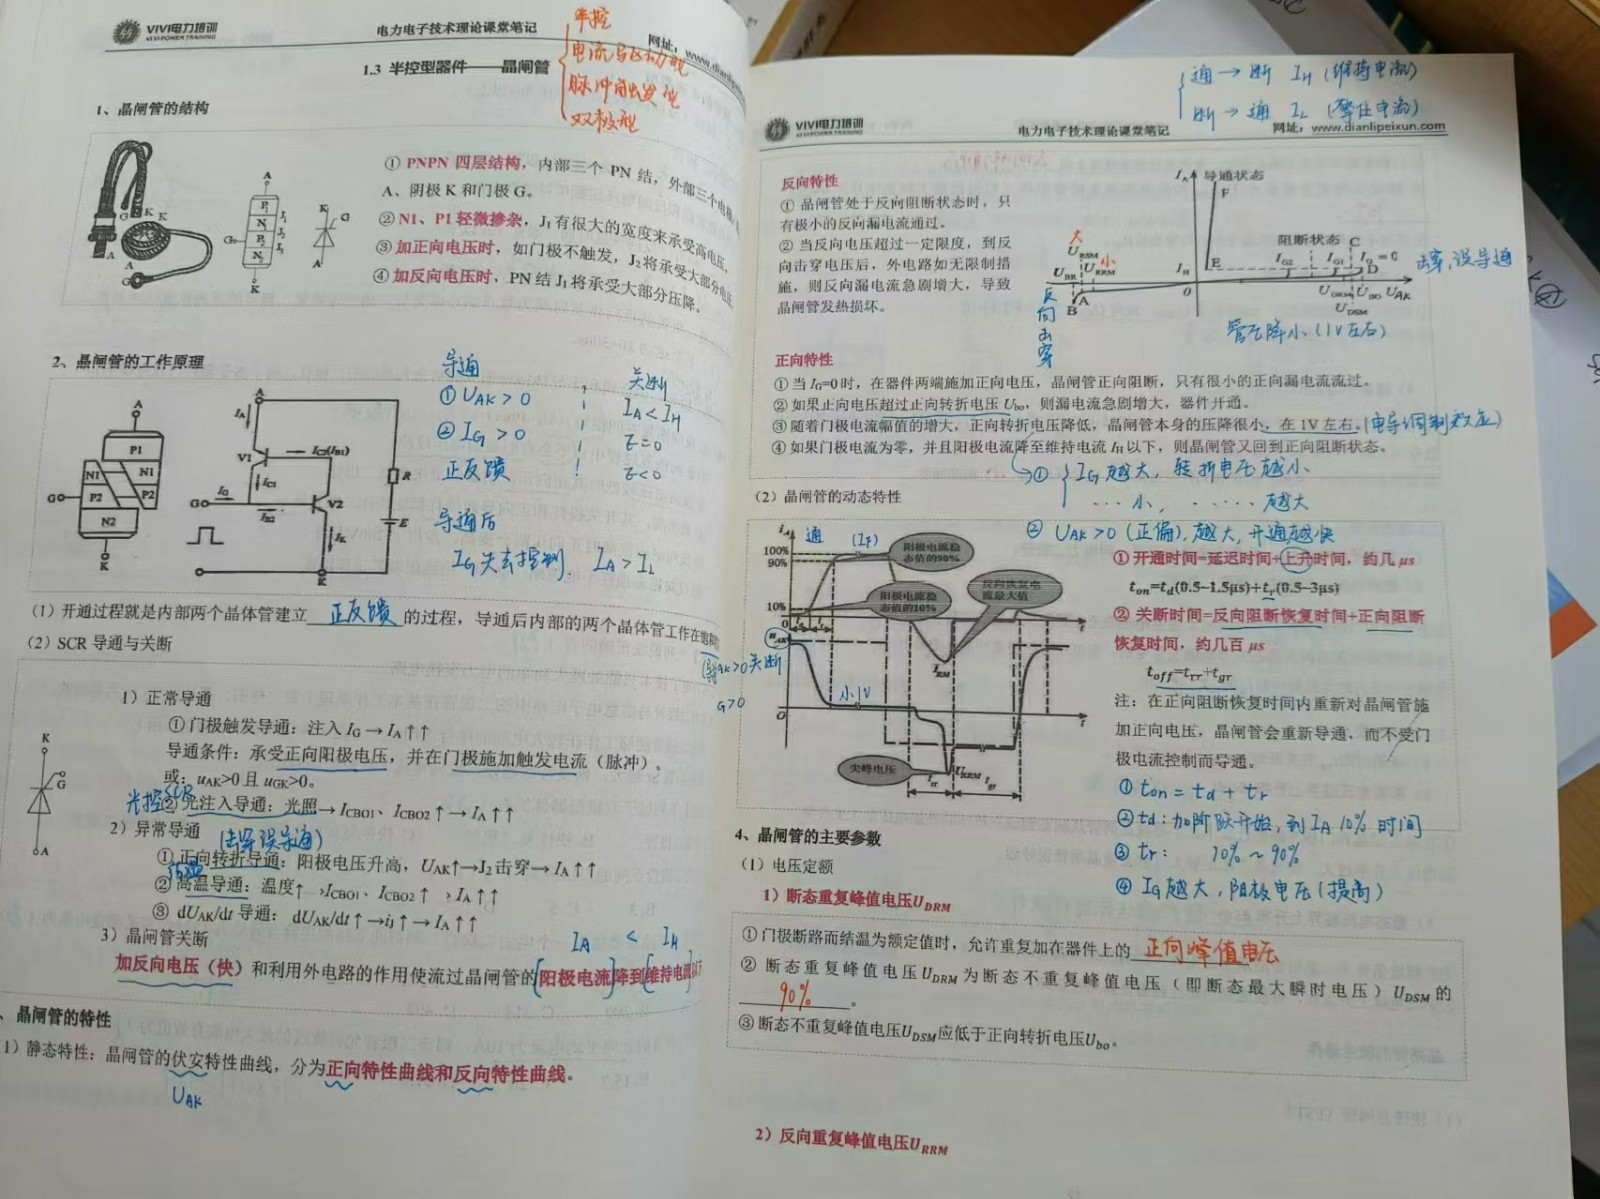 VIVI电力培训
VIVI POWER TRAINING
电力电子技术理论课堂笔记
网址：www.dianlipeixun.c
1.3 半控型器件——晶闸管
半控
电流驱动型
脉冲触发型
双极型
1、晶闸管的结构
① PNPN 四层结构，内部三个 PN 结，外部三个电
A、阴极 K 和门极 G。
② N1、P1 轻微掺杂，J₁ 有很大的宽度来承受高电压，
③ 加正向电压时，如门极不触发，J₂ 将承受大部分电压
④ 如反向电压时，PN 结 J₁ 将承受大部分压降。
2、晶闸管的工作原理
导通
① UAK > 0
② IG > 0
正反馈
导通后
IG 失去控制，IA > IL
关断
IA < IH
（1）开通过程就是内部两个晶体管建立 正反馈 的过程，导通后内部的两个晶体管工作在饱和
（2）SCR 导通与关断
1）正常导通
① 门极触发导通：注入 IG → IA ↑↑
导通条件：承受正向阳极电压，并在门极施加触发电流（脉冲）。
或：uAK>0 且 uGK>0。
光控SCR
② 光注入导通：光照→ ICBO1、ICBO2 ↑ → IA ↑↑
2）异常导通 (击穿误导通)
① 正向转折导通：阳极电压升高，UAK↑→J₂ 击穿→ IA ↑↑
② 高温导通：温度↑ →ICBO1、ICBO2 ↑ → IA ↑↑
③ dUAK/dt 导通： dUAK/dt ↑→ij↑→ IA ↑↑
3）晶闸管关断
IA < IH
加反向电压（快）和利用外电路的作用使流过晶闸管的 阳极电流 降到 维持电流以下
、晶闸管的特性
1）静态特性：晶闸管的伏安特性曲线，分为正向特性曲线和反向特性曲线。
UAK
通 → 断 IH (维持电流)
断 → 通 IL (擎住电流)
VIVI电力培训
VIVI POWER TRAINING
电力电子技术理论课堂笔记
网址：www.dianlipeixun.com
反向特性
① 晶闸管处于反向阻断状态时，只
有极小的反向漏电流通过。
② 当反向电压超过一定限度，到反
向击穿电压后，外电路如无限制措
施，则反向漏电流急剧增大，导致
晶闸管发热损坏。
IA 导通状态
F
阻断状态 C
E IH IG2 IG1 IG=0 D
击穿，误导通
大
URSM
小
UBR URRM
A
B
O
UDRM Ubo UAK
UDSM
反向击穿
管压降小 (1V左右)
正向特性
① 当 IG=0 时，在器件两端施加正向电压，晶闸管正向阻断，只有很小的正向漏电流流过。
② 如果正向电压超过正向转折电压 Ubo，则漏电流急剧增大，器件开通。
③ 随着门极电流幅值的增大，正向转折电压降低，晶闸管本身的压降很小，在 1V 左右。(电导调制效应)
④ 如果门极电流为零，并且阳极电流降至维持电流 IH 以下，则晶闸管又回到正向阻断状态。
① IG 越大，转折电压越小
…… 小，…… 越大
② UAK > 0 (正偏)，越大，开通越快
（2）晶闸管的动态特性
iA 通 (IF)
100%
90%
10%
阳极电流稳
态值的90%
阳极电流稳
态值的10%
反向恢复电
流最大值
IRM
uAK
小1V
尖峰电压
URRM
trr tgr
① 开通时间=延迟时间+上升时间，约几 μs
ton=td(0.5~1.5μs)+tr(0.5~3μs)
② 关断时间=反向阻断恢复时间+正向阻断
恢复时间，约几百 μs
toff=trr+tgr
注：在正向阻断恢复时间内重新对晶闸管施
加正向电压，晶闸管会重新导通，而不受门
极电流控制而导通。
① ton = td + tr
② td：加阶跃开始，到 IA 10% 时间
③ tr： 10% ~ 90%
④ IG越大，阳极电压 (提高)
4、晶闸管的主要参数
（1）电压定额
1）断态重复峰值电压UDRM
① 门极断路而结温为额定值时，允许重复加在器件上的 正向峰值电压
② 断态重复峰值电压 UDRM 为断态不重复峰值电压（即断态最大瞬时电压）UDSM 的
90% 。
③ 断态不重复峰值电压UDSM应低于正向转折电压Ubo。
2）反向重复峰值电压URRM